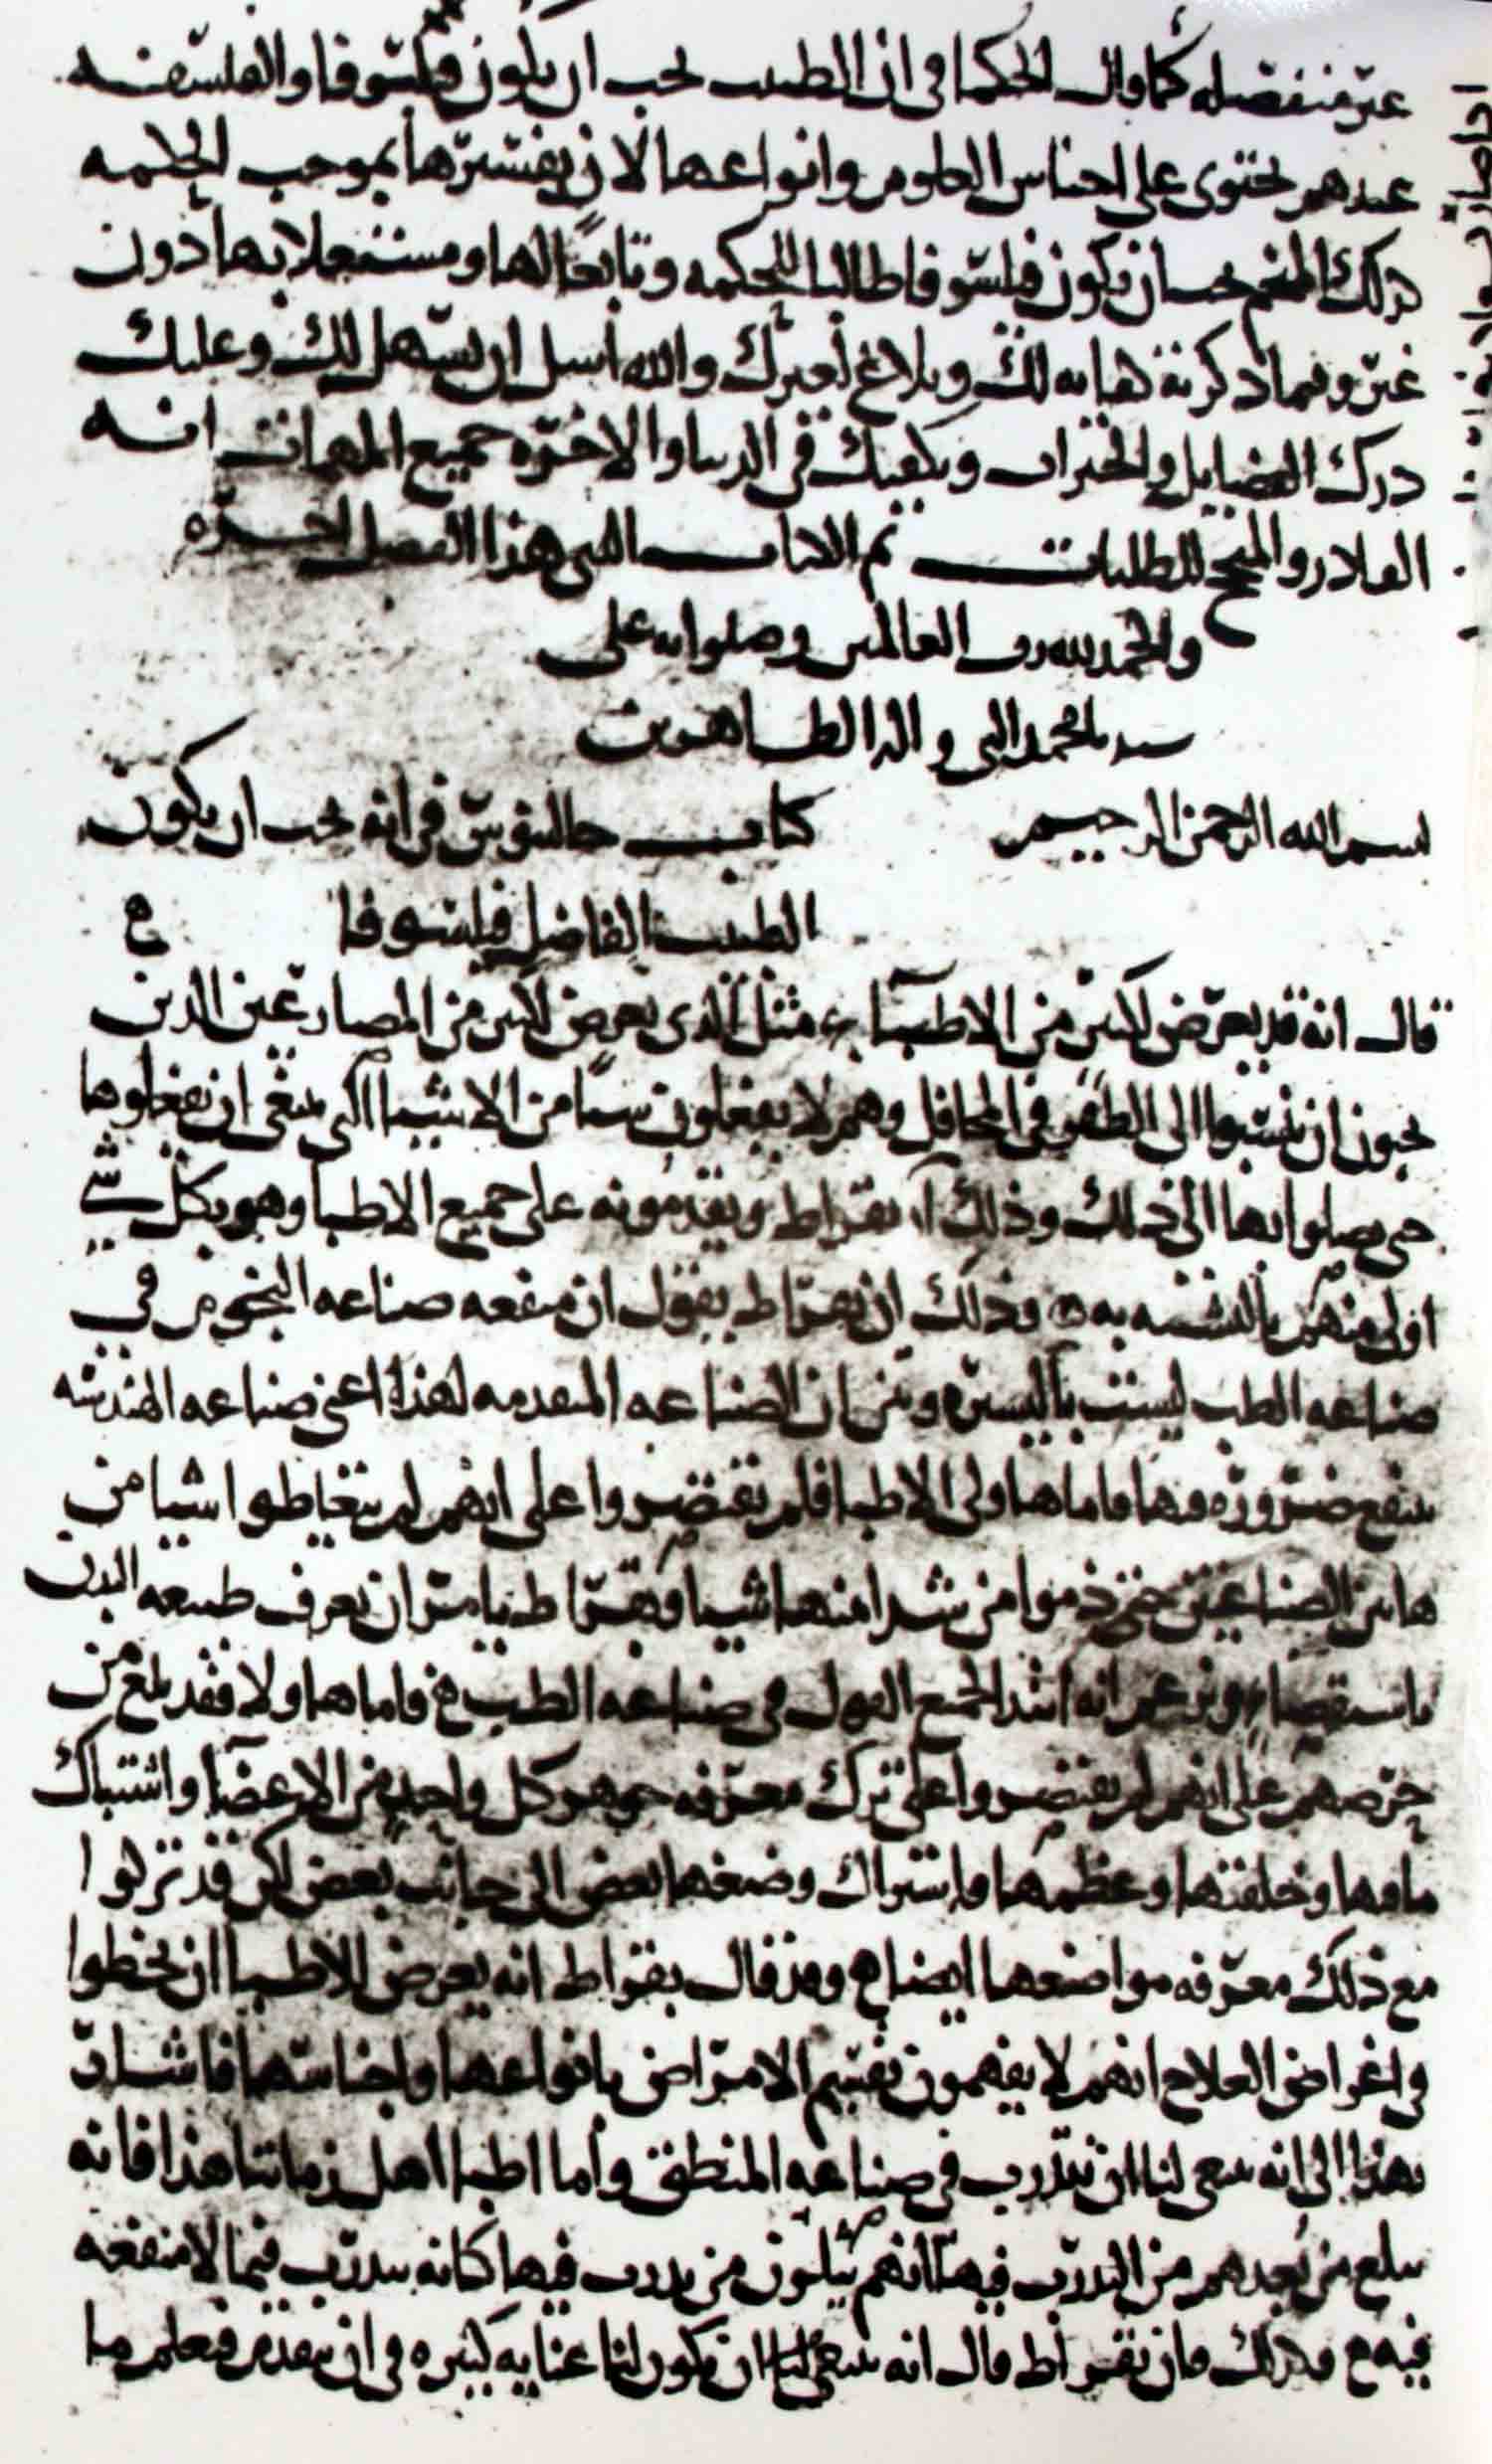 غير منفصله كما قال الحكما في ان الطبيب يجب ان يكون فيلسوفا والفلسفه
عندهم تحتوى على اجناس العلوم وانواعها لان تفسيرها بموجب الكلمه
كذلك المنجم يجب ان يكون فيلسوفا طالبا للحكمه وتابعا لها ومستعملا بها دون
غيره وفيما ذكرته كفايه لك وبلاغ لغيرك والله اسل ان يسهل لك وعليك
درك الفضايل والخيرات ويكفيك في الدنيا والاخره جميع المهمات انه
القادر والمنجح للطلبات تم الكتاب الى هذا الفصل اخره
والحمد لله رب العالمين وصلواته على
سيدنا محمد النبي واله الطاهرين
بسم الله الرحمن الرحيم كتاب جالينوس في انه يجب ان يكون
الطبيب الفاضل فيلسوفا
قال انه قد يعرض لكثير من الاطباء مثل الذى يعرض لكثير من المصارعين الذين
يحبون ان ينسبوا الى الظفر في المحافل وهم لا يفعلون شيا من الاشيا التي ينبغي ان يفعلوها
حتى يصلوا بها الى ذلك وذلك ان بقراط ويقدمونه على جميع الاطبا وهو بكل شي
اولى منهم بالتشبه به وذلك ان بقراط يقول ان منفعه صناعه النجوم في
صناعه الطب ليست باليسيره وبين ان الصناعه المتقدمه لهذا اعني صناعه الهندسه
ينتفع ضروره فيها فاما هاولى الاطبا فلم يقتصروا على انهم لم يتعاطوا شيا من
هاتين الصناعتين حتى ذموا من شدا منها شيا وبقراط يامر ان نعرف طبيعه البدن
باستقصاء ويزعم انه ابتدا لجميع القول في صناعه الطب فاما هاولا فقد بلغ من
حرصهم على انهم لم يقتصروا على ترك معرفه جوهر كل واحد من الاعضا واشتباك
ما فيها وخلقتها وعظمها واشتراك وضعها بعض الى جانب بعض لكن قد تركوا
مع ذلك معرفه مواضعها ايضا وقد قال بقراط انه يعرض للاطبا ان يخطوا
في اغراض العلاج انهم لا يفهمون تقسيم الامراض بانواعها واجناسها فاشار
بهذا الى انه ينبغي لنا ان نتدرب في صناعه المنطق واما اطبا اهل زماننا هذا فانه
يبلغ من بعدهم من التدرب فيها انهم يثلبون من يدرب فيها كانه يتدرب فيما لا منفعه
فيه وكذلك فان بقراط قال انه ينبغي لنا ان يكون لنا عنايه كثيره في ان نتقدم فنعلم ما